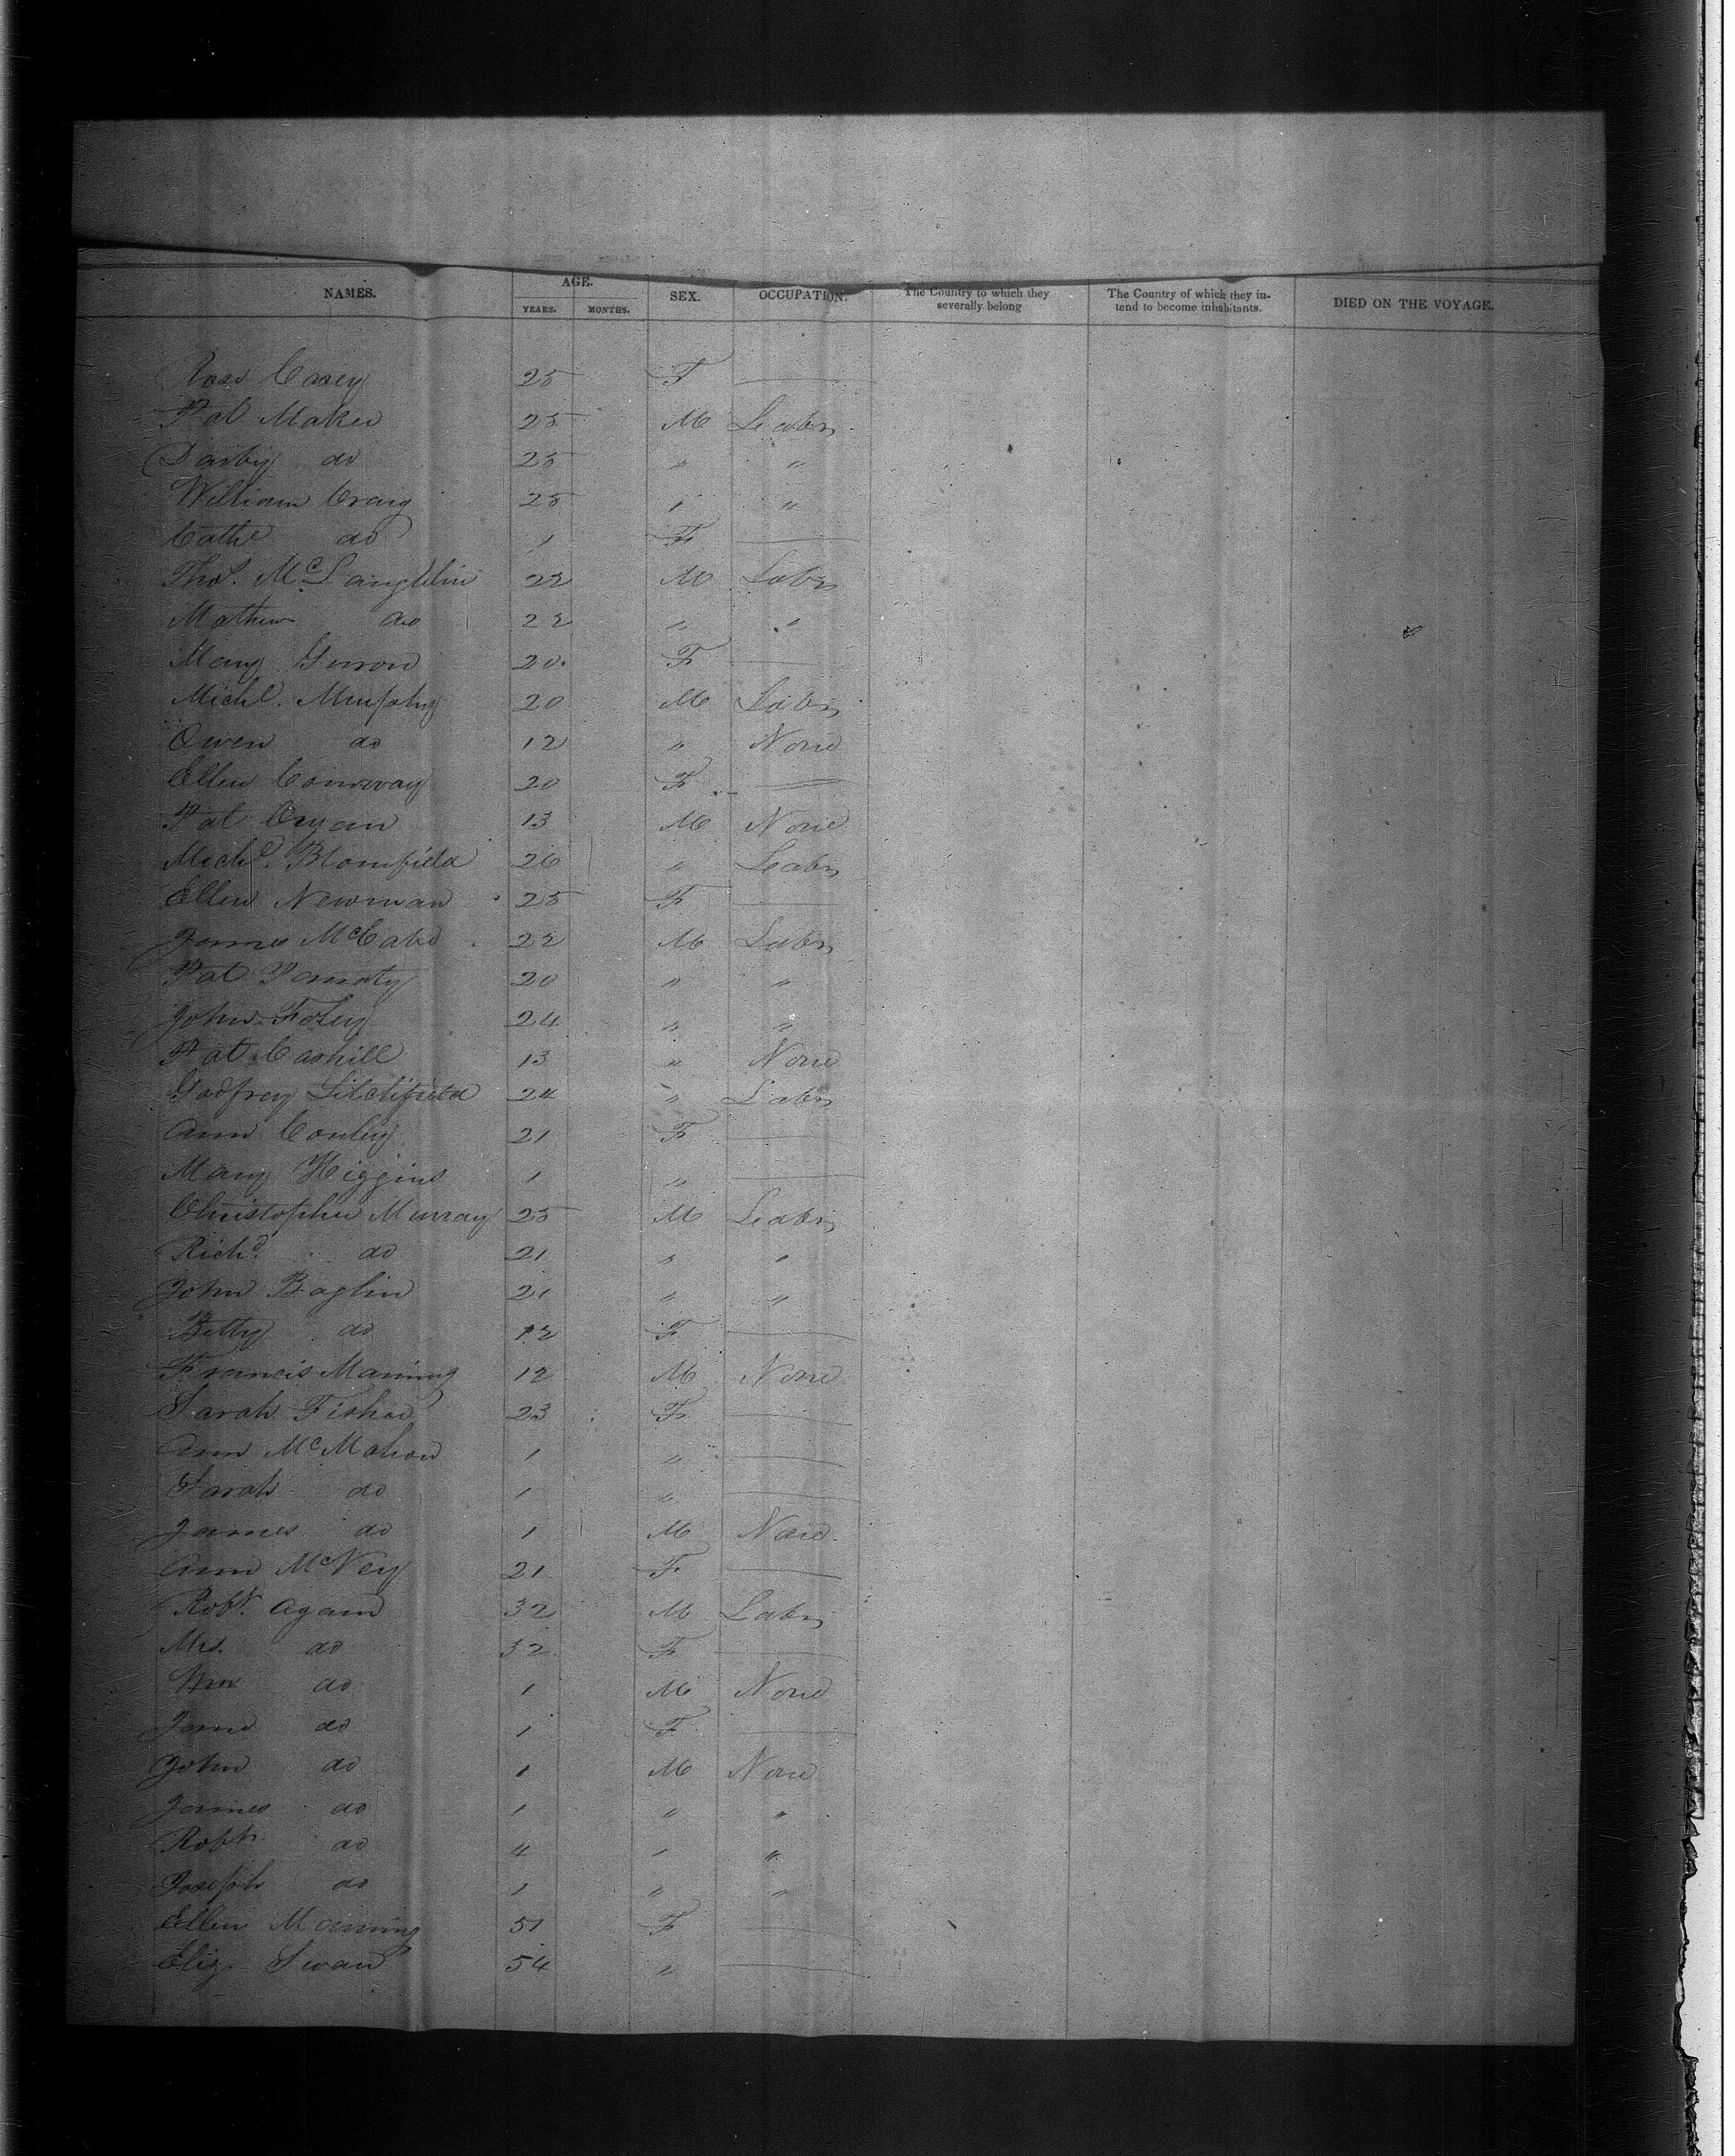 NAMES. AGE. YEARS. MONTHS. SEX. OCCUPATION. The Country to which they severally belong The Country of which they intend to become inhabitants. DIED ON THE VOYAGE.
Rose Casey 25 F —
Pat Maker 25 M Labr
Darby do 25 " "
William Craig 25 " "
Cathe do 1 F —
Thos. McLaughlin 22 M Labr
Mathew do 22 " "
Mary 20 F —
Michl. Murphy 20 M Labr
Owen do 12 " None
Ellen Conway 20 F —
Pat 13 M None
Michl. Blomfield 26 " Labr
Ellen Newman 25 F —
James McCabe 22 M Labr
Pat 20 " "
John Foley 24 " "
Pat Cashill 13 " None
Godfrey Litchfield 24 " Labr
Ann Conley 21 F —
Mary Higgins 1 " —
Christopher Murray 25 M Labr
Richd. do 21 " "
John Baglin 21 " "
Betty do 12 F —
Francis Manning 12 M None
Sarah Fisher 23 F —
Ann McMahon 1 " —
Sarah do 1 " —
James do 1 M None
Ann McVey 21 F —
Robt. Agam 32 M Labr
Mrs. do 32 F —
Wm do 1 M None
Jane do 1 F —
John do 1 M None
James do 1 " "
Robt. do 4 " "
Joseph do 1 " "
Ellen Manning 51 F —
Eliz. Swan 54 " —